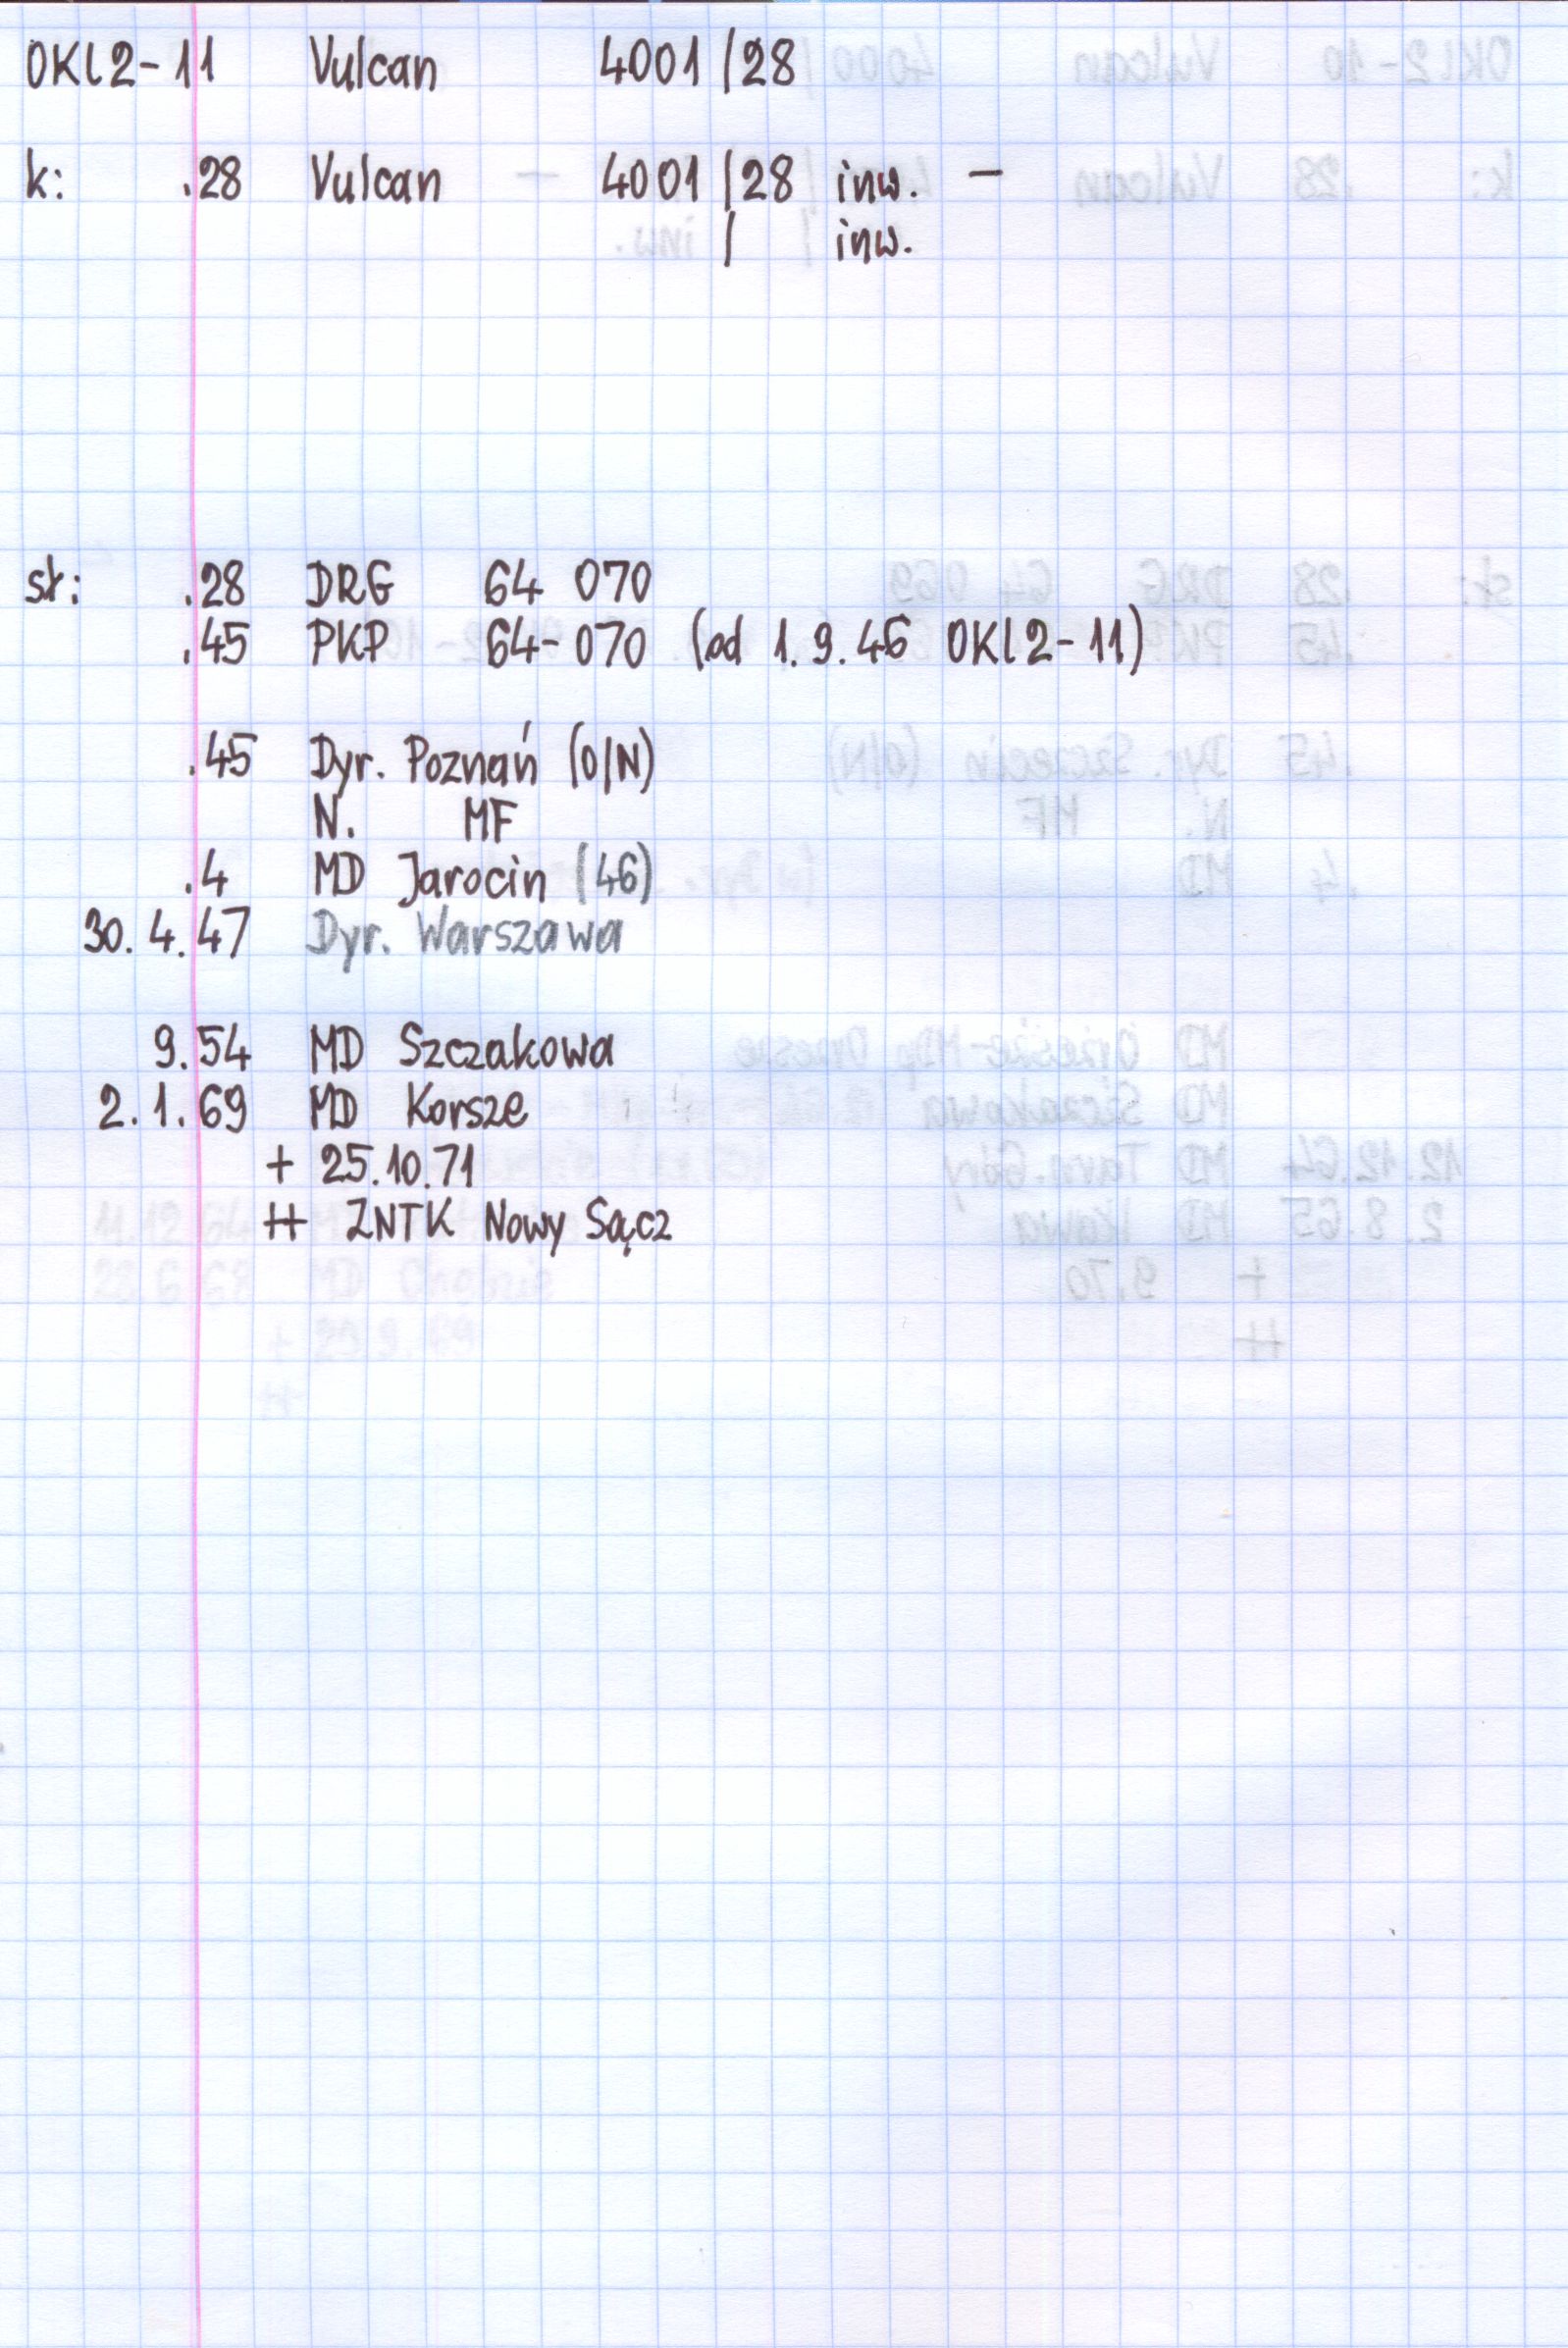 OKl2-11 Vulcan 4001/28
k: .28 Vulcan 4001/28 inw. -
/ inw.
sł: .28 DRG 64 070
.45 PKP 64-070 (od 1.9.46 OKl2-11)
.45 Dyr. Poznań (O/N)
N. MF
.4 MD Jarocin (46)
30.4.47 Dyr. Warszawa
9.54 MD Szczakowa
2.1.69 MD Korsze
+ 25.10.71
++ ZNTK Nowy Sącz